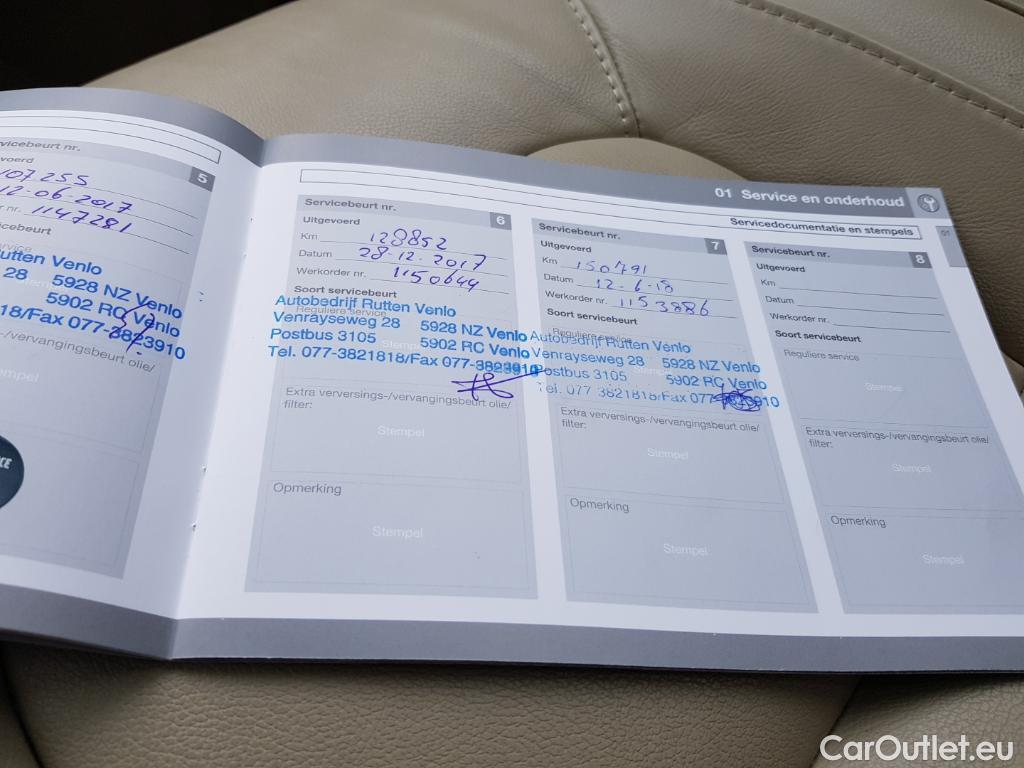 Servicebeurt nr. 5
voerd
107255
12-06-2017
r nr. 1147281
cebeurt
rvice
utten Venlo
28 5928 NZ Venlo
5902 RC Venlo
18/Fax 077-3823910
-/vervangingsbeurt olie/
Stempel
ICE
01 Service en onderhoud
Servicedocumentatie en stempels
01
Servicebeurt nr. 6
Uitgevoerd
Km 128852
Datum 28-12-2017
Werkorder nr. 1150644
Soort servicebeurt
Reguliere service
Autobedrijf Rutten Venlo
Venrayseweg 28 5928 NZ Venlo
Postbus 3105 5902 RC Venlo
Tel. 077-3821818/Fax 077-3823910
Extra verversings-/vervangingsbeurt olie/
filter:
Stempel
Opmerking
Stempel
Servicebeurt nr. 7
Uitgevoerd
Km 150791
Datum 12-6-18
Werkorder nr. 1153886
Soort servicebeurt
Reguliere service
Autobedrijf Rutten Venlo
Venrayseweg 28 5928 NZ Venlo
Postbus 3105 5902 RC Venlo
Tel. 077 3821818/Fax 077-3823910
Extra verversings-/vervangingsbeurt olie/
filter:
Stempel
Opmerking
Stempel
Servicebeurt nr. 8
Uitgevoerd
Km
Datum
Werkorder nr.
Soort servicebeurt
Reguliere service
Stempel
Extra verversings-/vervangingsbeurt olie/
filter:
Stempel
Opmerking
Stempel
CarOutlet.eu